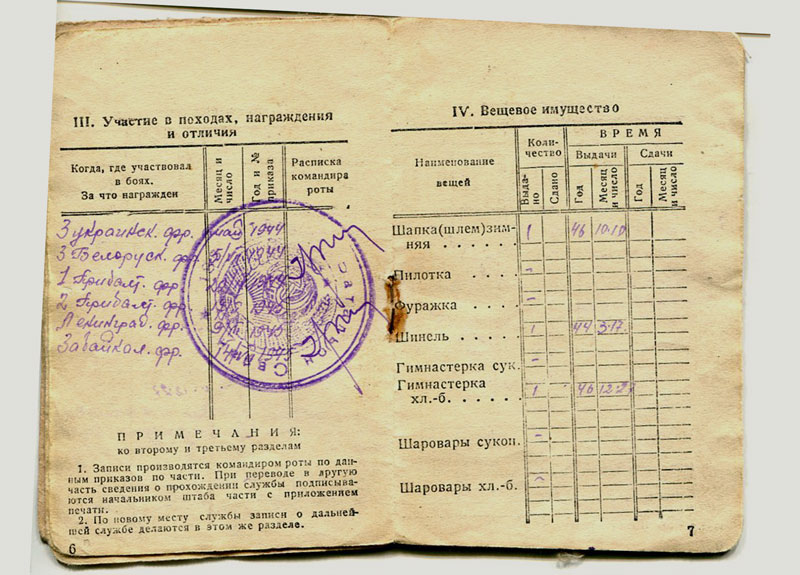 III. Участие в походах, награждения
и отличия
Когда, где участвовал
в боях.
За что награжден
Месяц и
число
Год и №
приказа
Расписка
командира
роты
3 украинск. фр. май 1944
3 Белорусск. фр. 1944
1 Прибалт. фр.
2 Прибалт. фр.
Ленинград. фр. 1945
Забайкал. фр. 1945
ПРИМЕЧАНИЯ:
ко второму и третьему разделам
1. Записи производятся командиром роты по дан-
ным приказов по части. При переводе в другую
часть сведения о прохождении службы подписыва-
ются начальником штаба части с приложением
печати.
2. По новому месту службы записи о дальней-
шей службе делаются в этом же разделе.
6
IV. Вещевое имущество
Наименование
вещей
Коли-
чество
ВРЕМЯ
Выдачи
Сдачи
Выда-
но
Сдано
Год
Месяц
и число
Год
Месяц
и число
Шапка(шлем)зим-
няя . . . . . . 1 46 10.10
Пилотка . . . . -
Фуражка . . . . -
Шинель . . . . 1 44 3.17
Гимнастерка сук. -
Гимнастерка
хл.-б. . . . . . 1 46
Шаровары сукон. -
Шаровары хл.-б. -
7